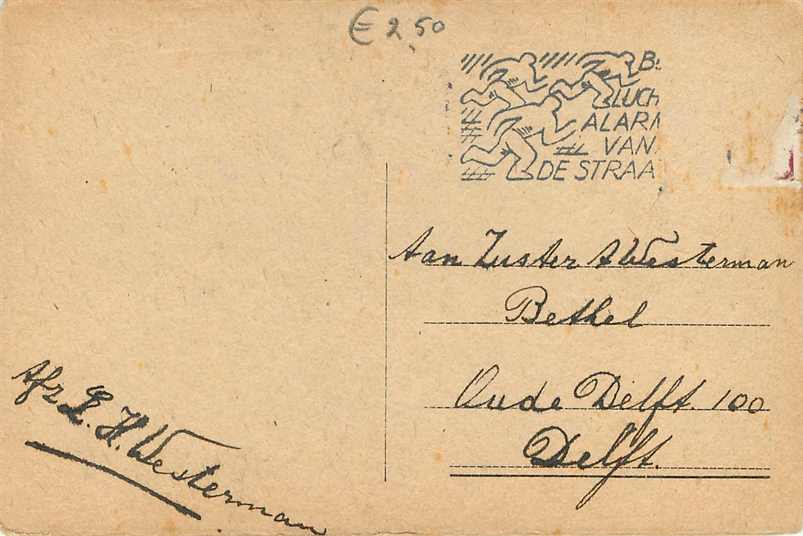 € 2,50
B
LUCH
ALARM
VAN
DE STRAA
Aan Zuster A Westerman
Bethel
Oude Delft. 100
Delft.
Afz L. H. Westerman